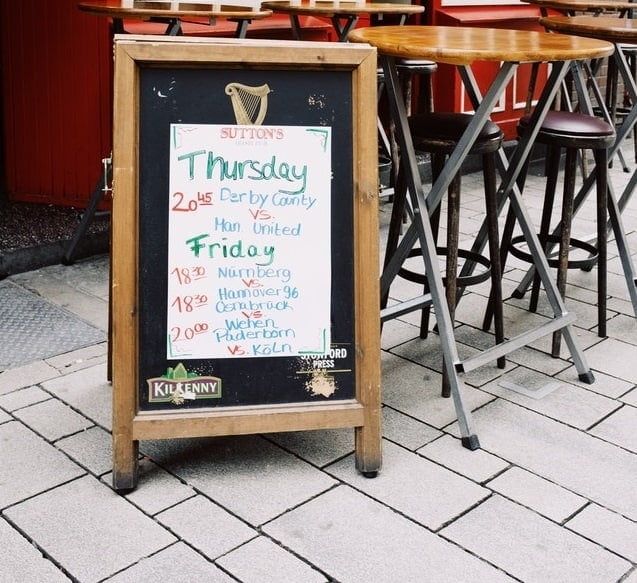 SUTTON'S
Thursday
20⁴⁵ Derby County
VS.
Man. United
Friday
18³⁰ Nürnberg
VS.
Hannover 96
18³⁰ Osnabrück
VS
20⁰⁰ Wehen
Paderborn
VS. KöLN
KILKENNY
STOWFORD
PRESS